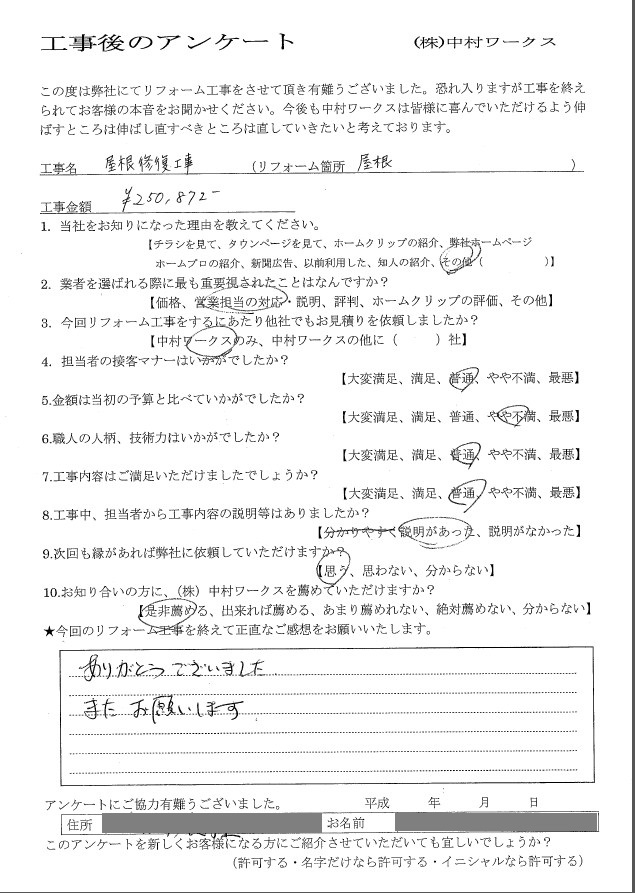 工事後のアンケート　(株)中村ワークス
この度は弊社にてリフォーム工事をさせて頂き有難うございました。恐れ入りますが工事を終え
られてお客様の本音をお聞かせください。今後も中村ワークスは皆様に喜んでいただけるよう伸
ばすところは伸ばし直すべきところは直していきたいと考えております。
工事名　屋根修復工事　（リフォーム箇所　屋根　）
工事金額　¥250,872-
1. 当社をお知りになった理由を教えてください。
【チラシを見て、タウンページを見て、ホームクリップの紹介、弊社ホームページ
ホームプロの紹介、新聞広告、以前利用した、知人の紹介、その他（　　　　）】
2. 業者を選ばれる際に最も重要視されたことはなんですか？
【価格、営業担当の対応・説明、評判、ホームクリップの評価、その他】
3. 今回リフォーム工事をするにあたり他社でもお見積りを依頼しましたか？
【中村ワークスのみ、中村ワークスの他に（　　）社】
4. 担当者の接客マナーはいかがでしたか？
【大変満足、満足、普通、やや不満、最悪】
5.金額は当初の予算と比べていかがでしたか？
【大変満足、満足、普通、やや不満、最悪】
6.職人の人柄、技術力はいかがでしたか？
【大変満足、満足、普通、やや不満、最悪】
7.工事内容はご満足いただけましたでしょうか？
【大変満足、満足、普通、やや不満、最悪】
8.工事中、担当者から工事内容の説明等はありましたか？
【分かりやすく説明があった、説明がなかった】
9.次回も縁があれば弊社に依頼していただけますか？
【思う、思わない、分からない】
10.お知り合いの方に、（株）中村ワークスを薦めていただけますか？
【是非薦める、出来れば薦める、あまり薦めれない、絶対薦めない、分からない】
★今回のリフォーム工事を終えて正直なご感想をお願いいたします。
ありがとうございました
また お願いします
アンケートにご協力有難うございました。　平成　年　月　日
住所　お名前
このアンケートを新しくお客様になる方にご紹介させていただいても宜しいでしょうか？
（許可する・名字だけなら許可する・イニシャルなら許可する）